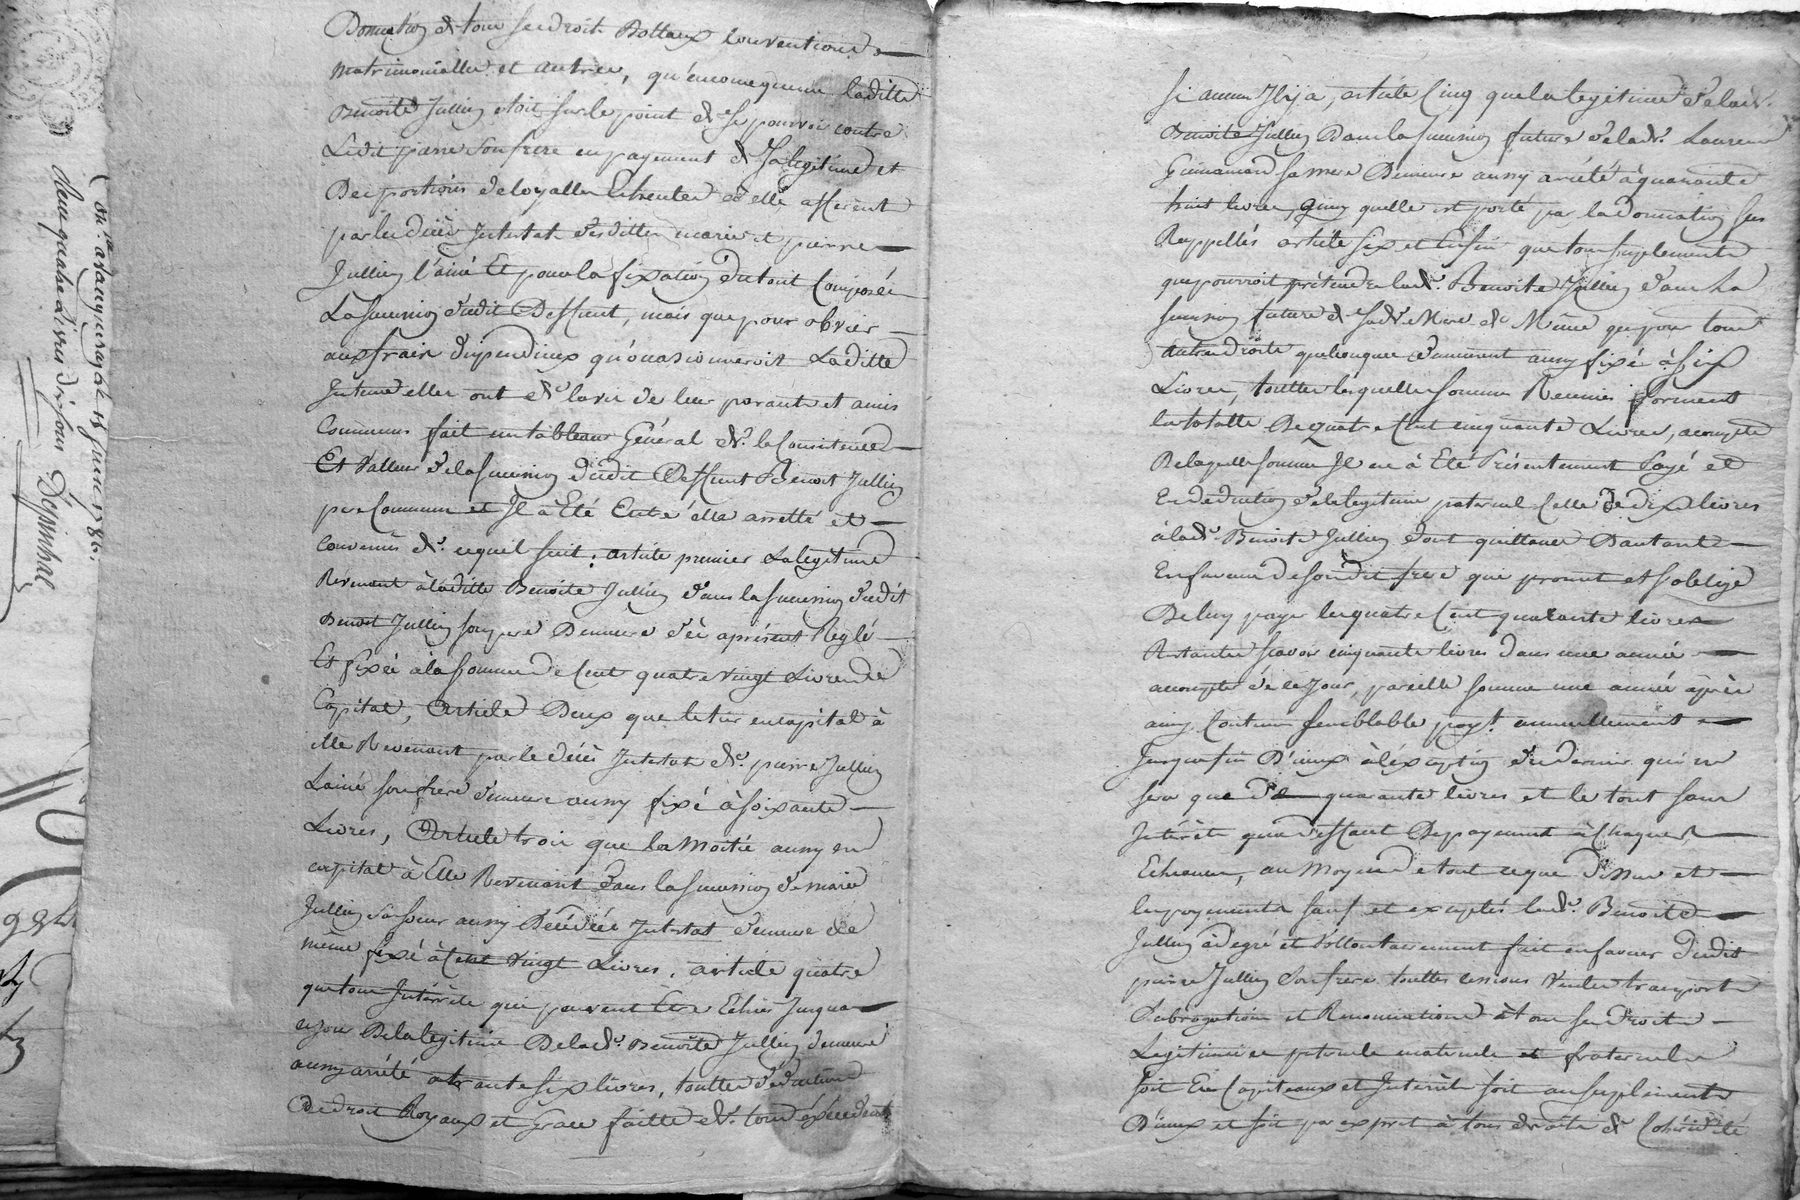 Donation & tous ses droits Dottaux conventions
matrimonialles et autres, qu'enconsequence laditte
Benoite Jullien etoit sur le point de se pourvoir contre
Ledit pierre son frere en payement de sa legitime et
Des portions deloyalles Echeutes à elle afferent
par les décès Intestat desdittes marie et pierre
Jullien l'ainé Et pour la fixation du tout Composée
La succession dudit Deffunt, mais que pour obvier
aux frais dispendieux qu'occasionneroit Laditte
Instance elles ont de l'avis de leur parants et amis
Communs fait un tableau Général de la Consistance
Et Valleur de la succession dudit Deffunt Benoit Jullien
pere Commun et Il à Eté Entre elles arretté et
Convenüs de ce quil suit : article premier La legitime
Revenant à laditte Benoite Jullien dans la succession dudit
Benoit Jullien son pere Demeure d'ès aprésent Réglé
Et fixée à la somme de Cent quatre vingt Livres de
Capital, Article Deux que le tiers en capital à
elle Revenant par le décès Intestat de pierre Jullien
Lainé son frere demeure aussy fixé à soixante
Livres, Article trois que la Moitié aussy en
capital à Elle Revenant dans la succession de marie
Jullien sa soeur aussy Décédée Intestat demeure de
même fixé à Cent vingt Livres, article quatre
que tous Intérrêts qui peuvent Etre Echus Jusqua
ce jour De la legitime De lad. Benoite Jullien demeure
aussy arrété à trante six livres, toutte déduction
de droit Royaux et grace faitte de tout excedent
si aucun Il y a, article Cinq que la legitime de lad.
Benoite Jullien Dans la succession future de lad. Laurence
Guinamand sa mere Demeure aussy arrété à quarante
huit livres, ainsy quelle est porté par la donnation sus
Rappellés article six et Enfin que tous suplements
que pourroit prétendre lad. Benoite Jullien dans la
succession future de sad. Mere et Même que pour tous
autres droits quelconques demeurent aussy fixé à six
Livres, touttes lesquelles sommes Reunies forment
la totalle De quatre Cent cinquante Livres, acompte
De laquelle somme Il en à Eté Présentement Payé et
En deduction de la legitime paternel Celle de dix livres
à lad. Benoite Jullien dont quittance Dautant
En faveur de son dit frere que promet et s'oblige
De luy payer les quatre Cent quarante livres
Restantes scavoir cinquante livres dans une année
acompter de ce Jour, pareille somme une année après
ainsy Continuer semblable payt. annuellement
Jusqu'a fin D'iceux à l'éxception du dernier qui ne
sera que de quarante livres et le tout sans
Intérêts qu'en deffaut De payement à chaques
Echeances, au Moyen de tout ce que Dessus et
les payements sauf et exceptés lad. Benoite
Jullien à degré et Vollontairement fait en faveur Dudit
pierre Jullien son frere touttes cessions Ventes transports
Subrogations et Renonciations à tous ses Droits
Legitimaires paternels maternels et fraternels
soit En Capiteaux et Intérêts soit au suplements
D'iceux et soit par exprès à tous droits de Cohéridité
(On. la
livres dix sous
Despinhal